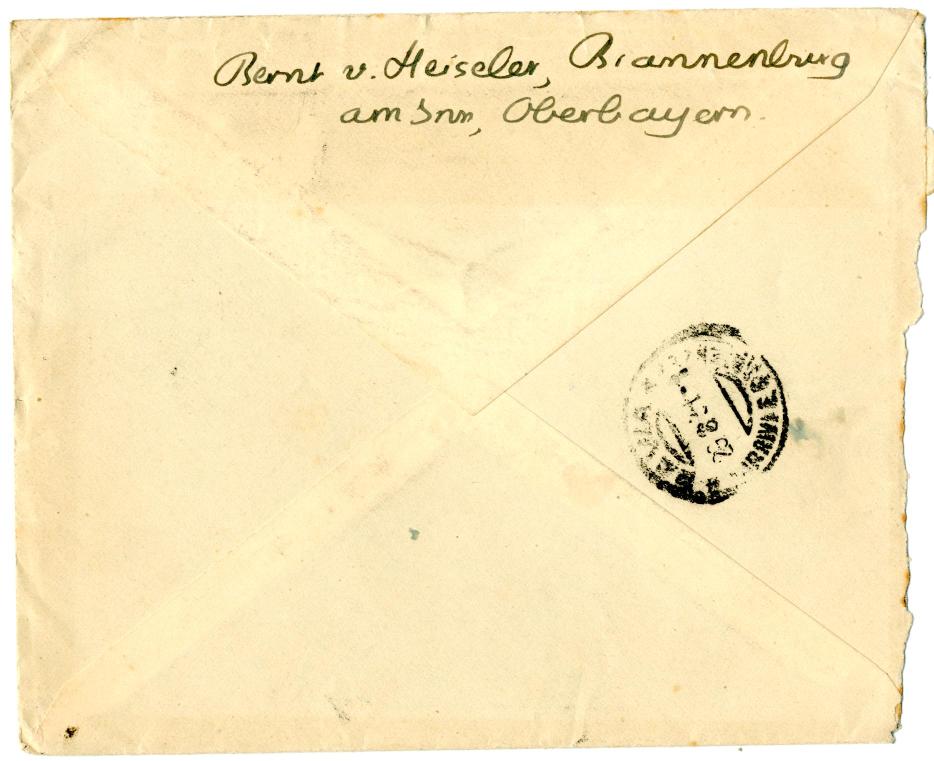 Bernt v. Heiseler, Brannenburg
am Inn, Oberbayern.
PAVIA